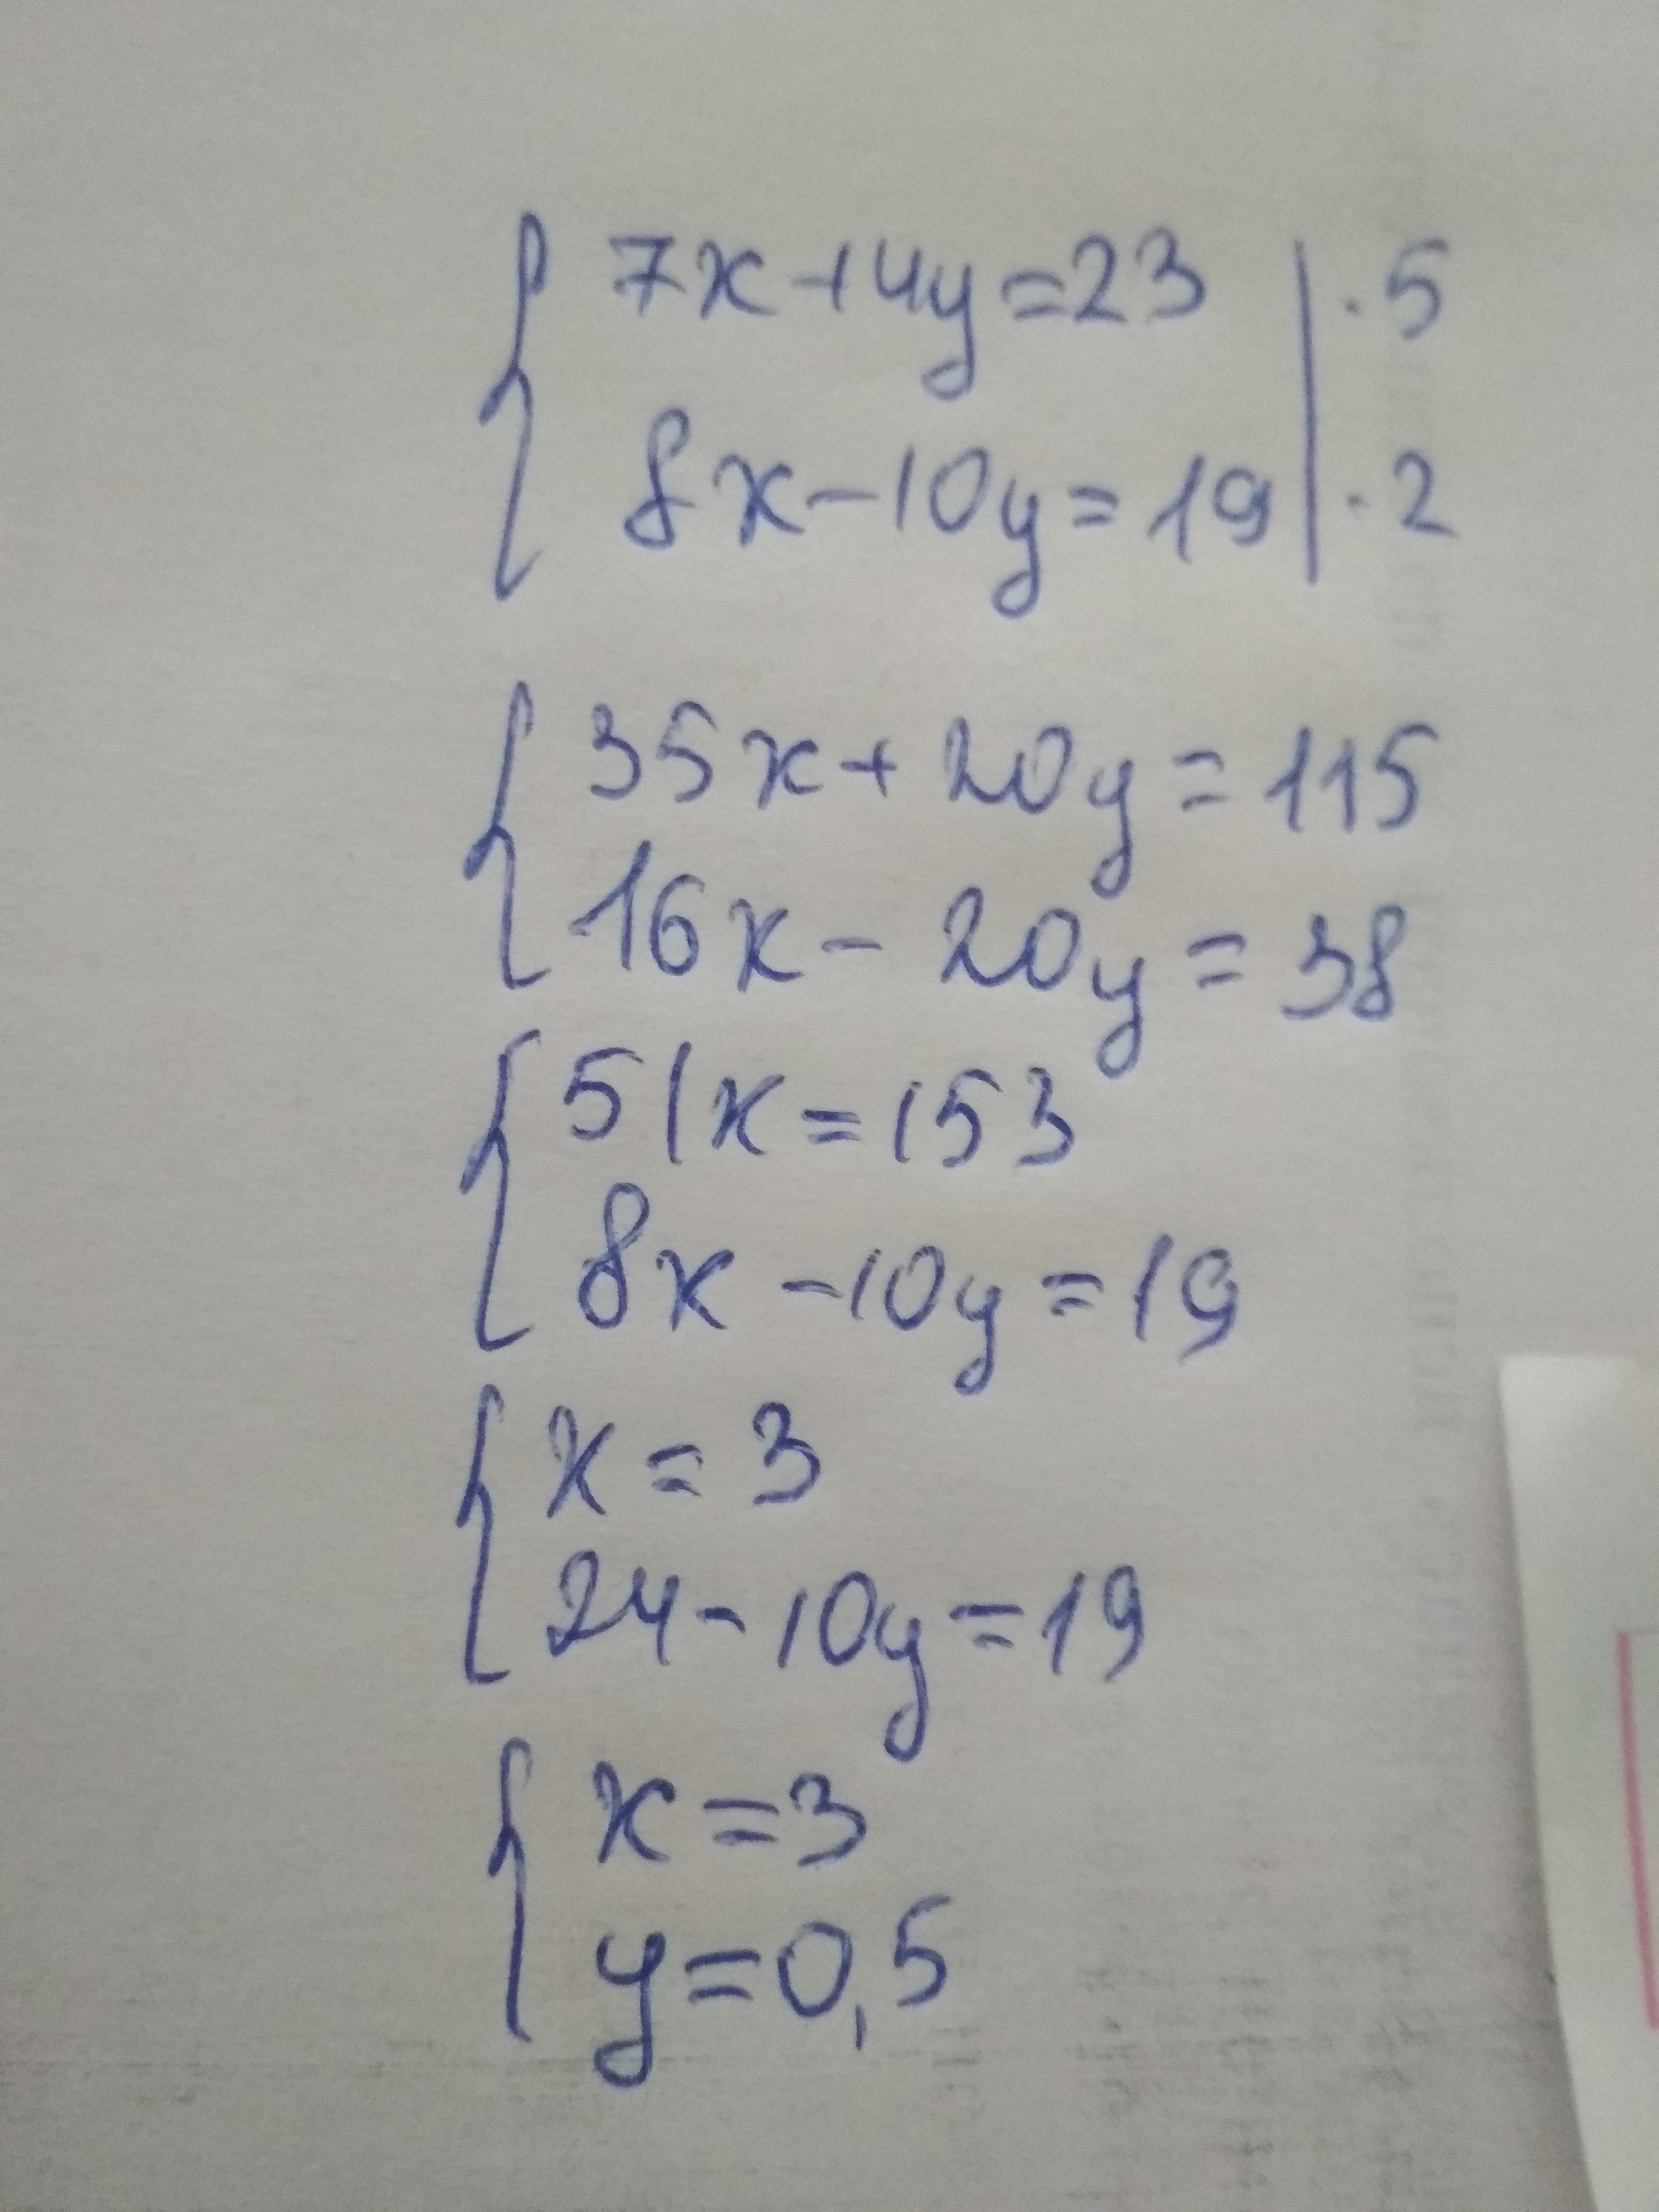 7x+4y=23 | ·5
8x-10y=19 | ·2
35x+20y=115
16x-20y=38
51x=153
8x-10y=19
x=3
24-10y=19
x=3
y=0,5